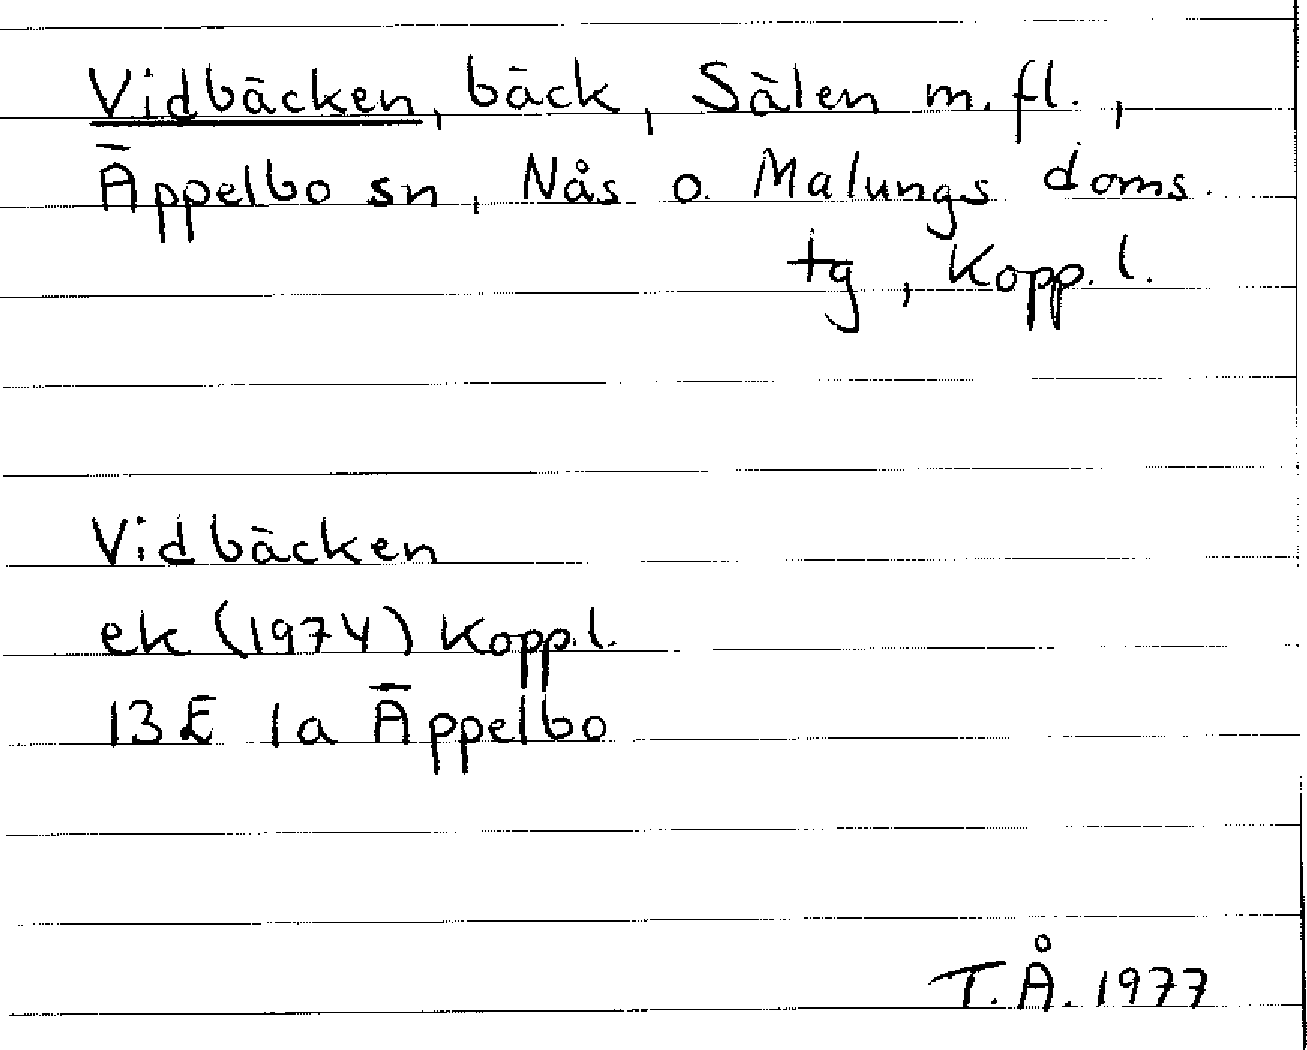 Vidbäcken, bäck, Sälen m.fl.,
Äppelbo sn, Nås o. Malungs doms.
tg, Kopp.l.
Vidbäcken
ek (1974) Kopp.l.
13E 1a Äppelbo
T.Å. 1977